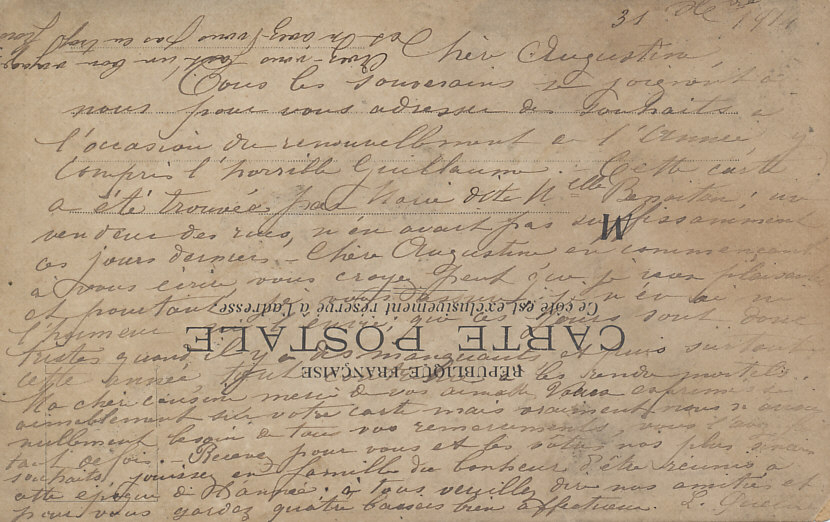 31 Xbre 191
Chère Augustine,
Tous les souverains se joignent à
nous pour vous adresser des souhaits à
l'occasion du renouvellement de l'Année, y
compris l'horrible Guillaume. Cette carte
a été trouvée par Marie dite Melle Benoiton; un
vendeur des rues, n'en avait pas suffisamment
ces jours derniers. Chère Augustine en commençant
à vous écrire, vous croyez peut que je veux plaisanter
et pourtant, je n'en ai ni
l'humeur ni l'envie, les jours sont donc
tristes quand il y a des manquants et puis surtout
cette année, tout les rends mortels.
Ma chère cousine merci de vos aimables Voeux exprimés si
aimablement sur votre carte mais vraiment nous n'avions
nullement besoin de tous vos remerciements, vous l'avez
tant de fois. Recevez pour vous et les vôtres nos plus sincères
souhaits, jouissez en famille du bonheur d'être réunis à
cette époque de l'année; à tous veuillez dire nos amitiés et
pour vous gardez quatre baisers bien affectueux. L.
M
Ce côté est exclusivement réservé à l'adresse
CARTE POSTALE
RÉPUBLIQUE FRANÇAISE